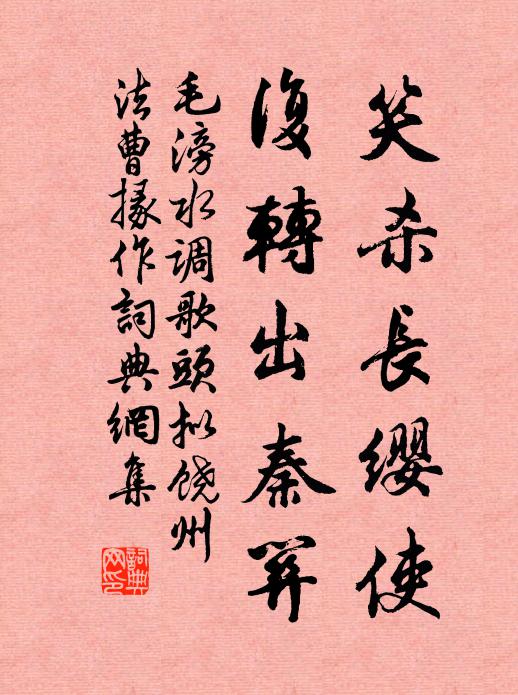 笑杀長缨使
復轉出秦關
毛滂水调歌頭拟饶州
法曹掾作詞典網集
詞典網印